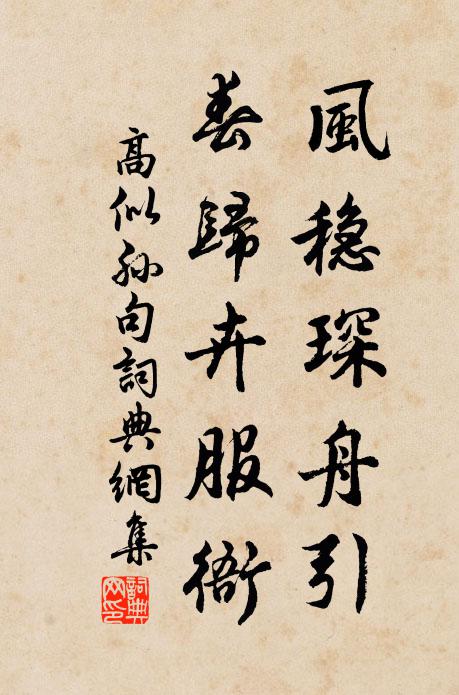 風穏琛舟引
春歸卉服衙
高似孫句詞典網集
詞典网印